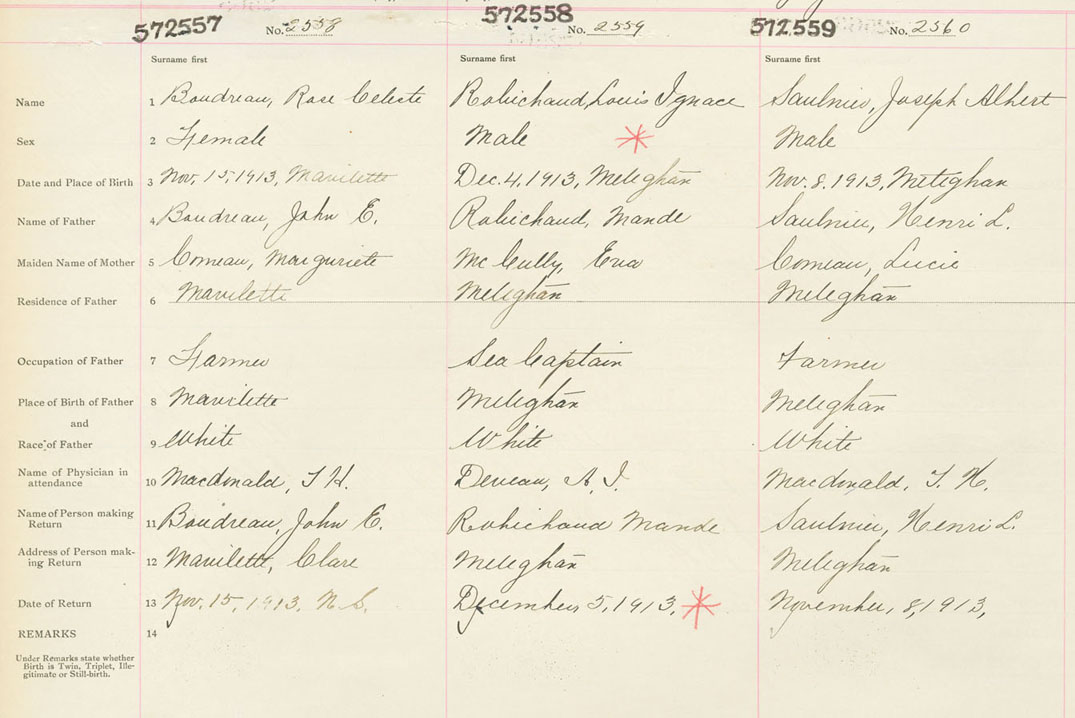 572557 No. 2558 572558 No. 2559 572559 No. 2560
Surname first Surname first Surname first
Name 1 Boudreau, Rose Celeste Robichaud, Louis Ignace Saulnier, Joseph Albert
Sex 2 Female Male Male
Date and Place of Birth 3 Nov. 15, 1913, Mavilette Dec. 4, 1913, Meteghan Nov. 8. 1913, Meteghan
Name of Father 4 Boudreau, John E. Robichaud, Mande Saulnier, Henri L.
Maiden Name of Mother 5 Comeau, Marguriete Mc Cully, Eva Comeau, Lucie
Residence of Father 6 Mavilette Meteghan Meteghan
Occupation of Father 7 Farmer Sea Captain Farmer
Place of Birth of Father 8 Mavilette Meteghan Meteghan
and
Race of Father 9 White White White
Name of Physician in
attendance 10 Macdonald, T. H. Deveau, A. I. Macdonald, T. H.
Name of Person making
Return 11 Boudreau, John E. Robichaud Mande Saulnier, Henri L.
Address of Person mak-
ing Return 12 Mavilette, Clare Meteghan Meteghan
Date of Return 13 Nov. 15, 1913, N.S. December 5, 1913, November, 8, 1913,
REMARKS 14
Under Remarks state whether
Birth is Twin, Triplet, Ille-
gitimate or Still-birth.